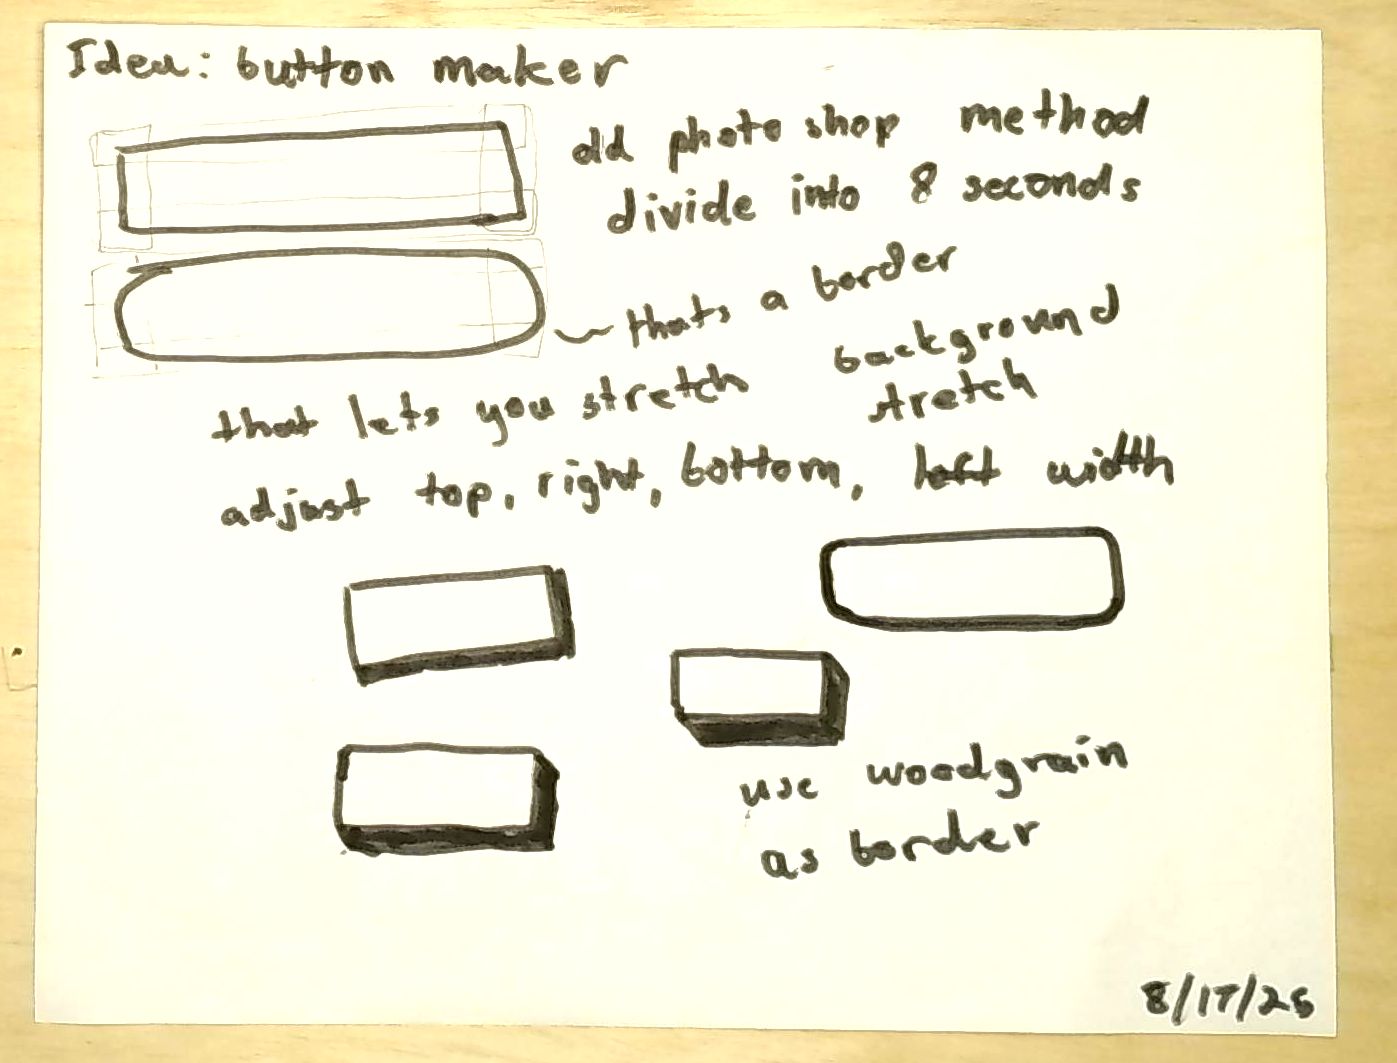 Idea: button maker
old photoshop method
divide into 8 seconds
thats a border
that lets you stretch
background
stretch
adjust top, right, bottom, left width
use woodgrain
as border
8/17/25